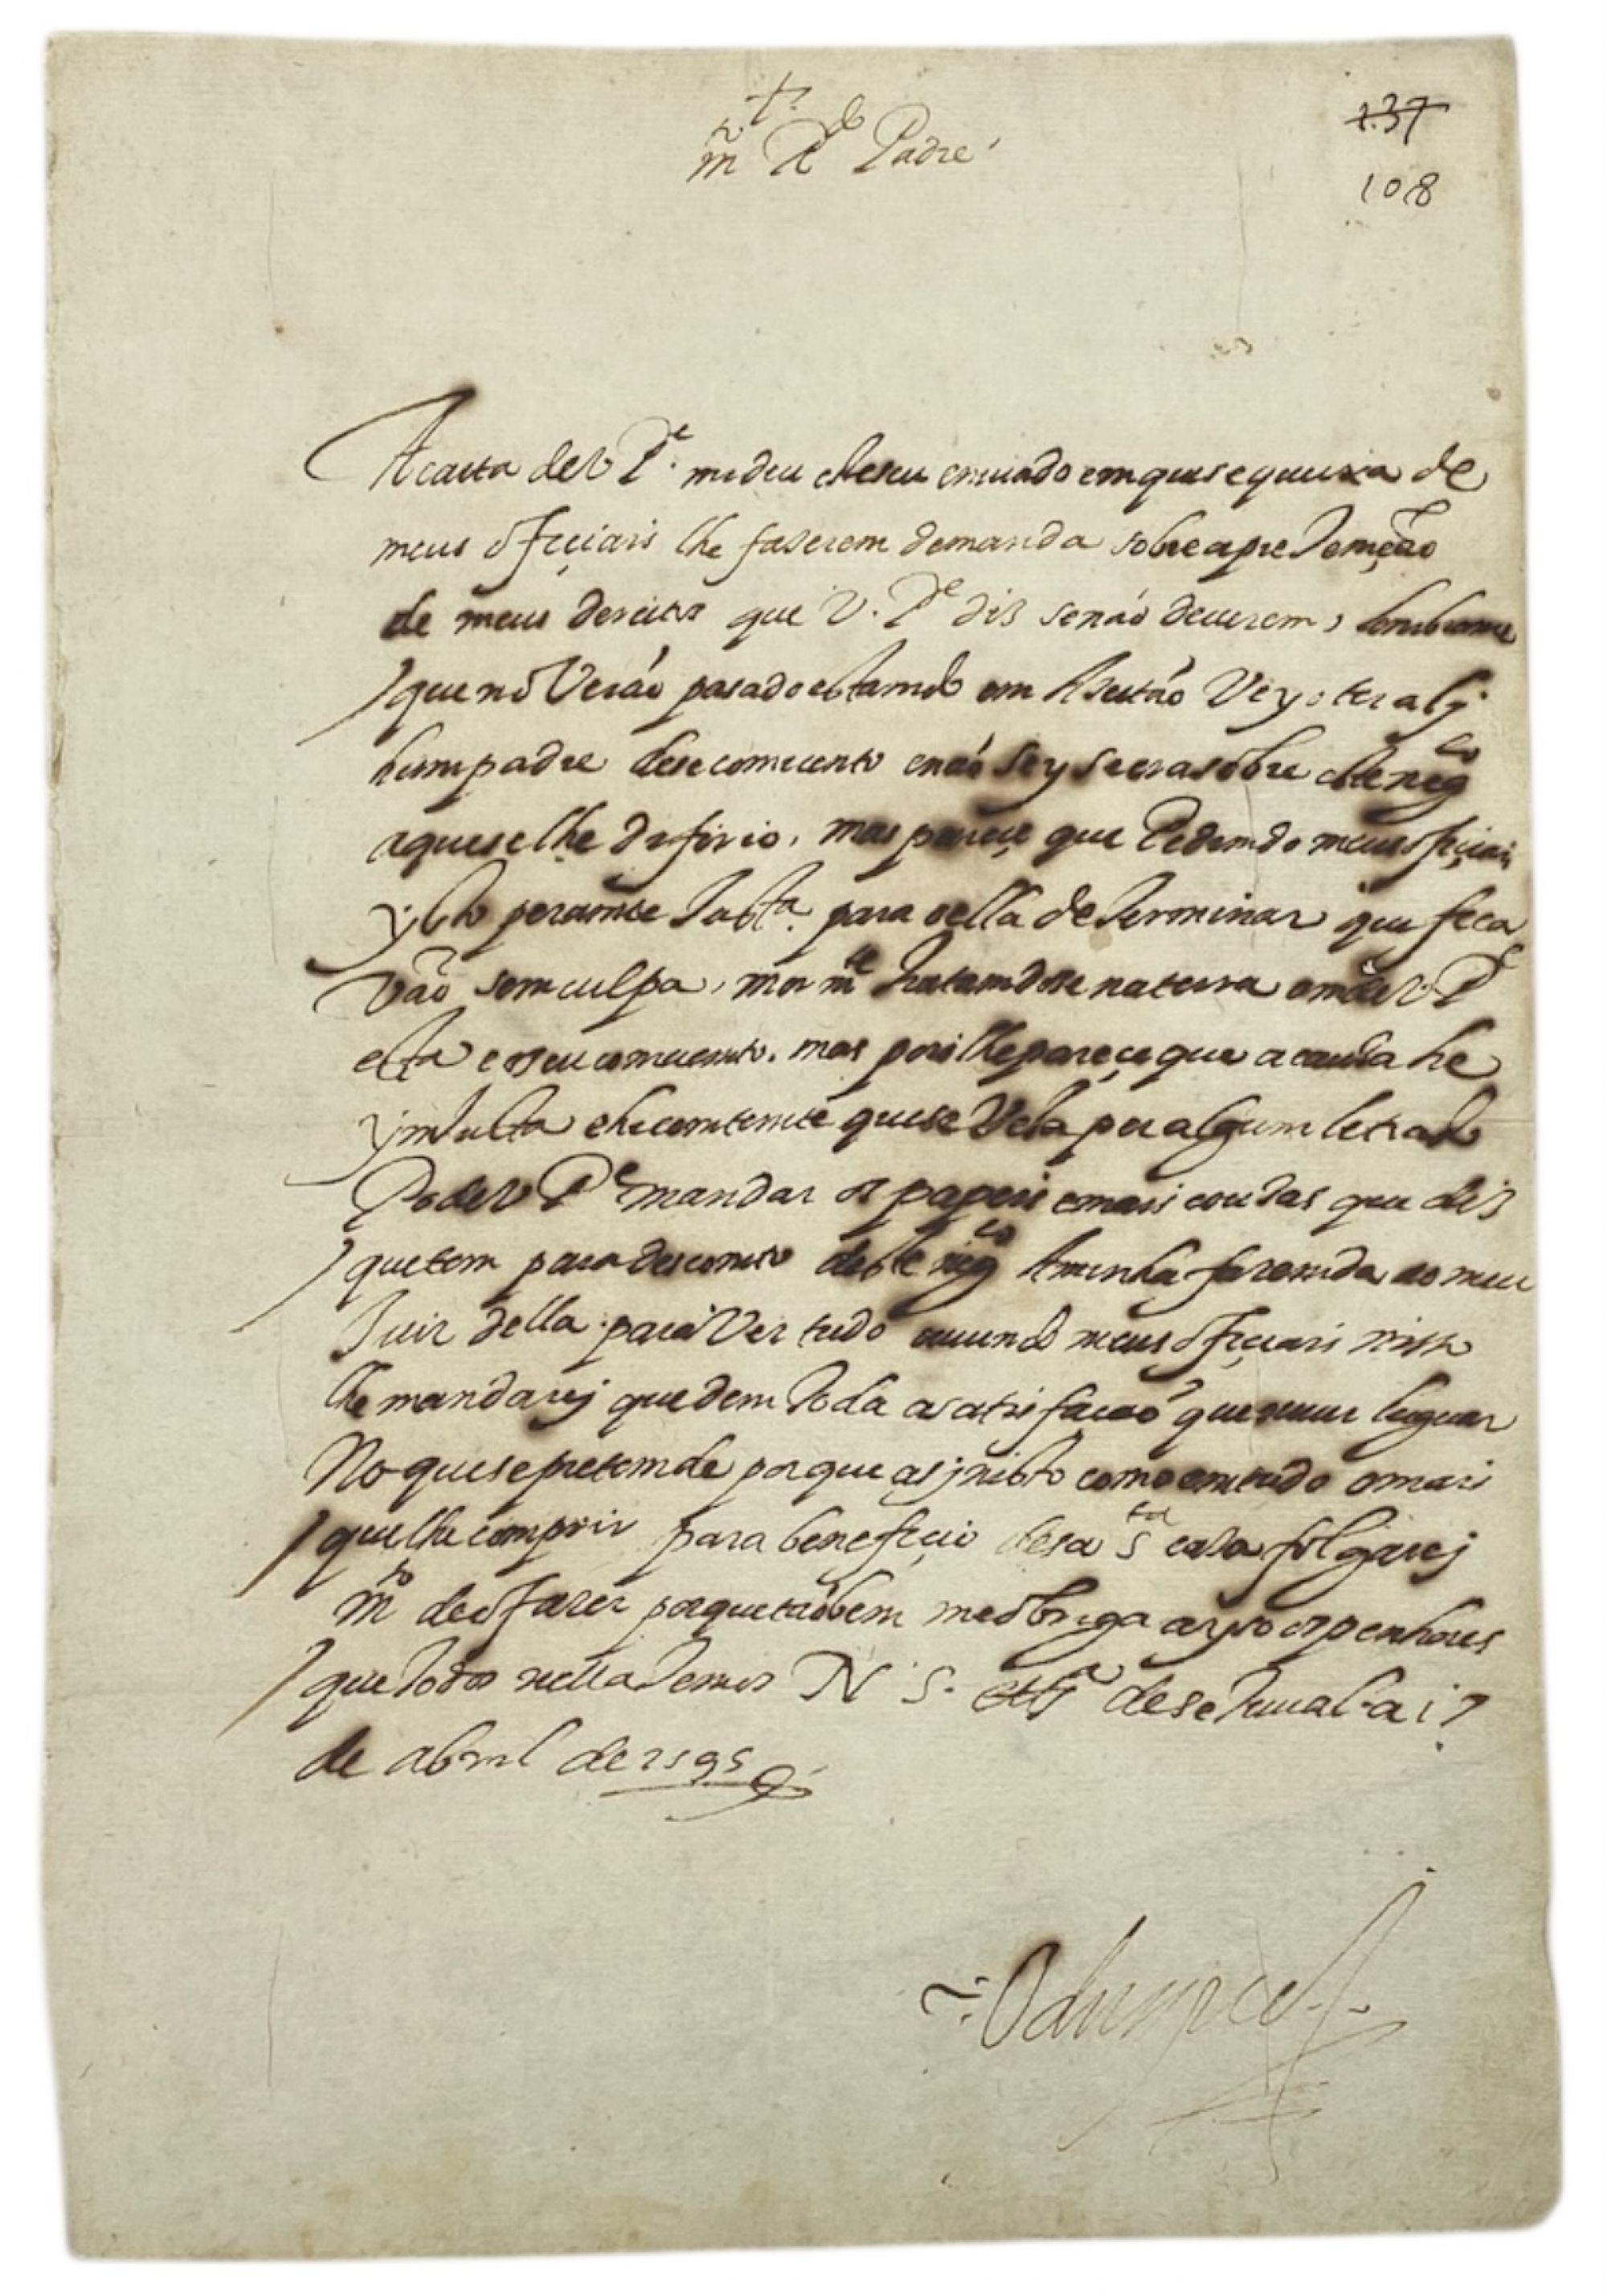 †
m R.do Padre
137
108
A carta de V. P.e me deu este seu enuiado em que se queixa de
meus offiçiais lhe fazerem demanda sobre a pretemção
de meus dereitos que V. P.e dis se não deuerem, lembrame
que no Verão pasado estamdo em
hum padre dese comuento e não sey se era sobre este neg.co
a que se lhe defirio. mas pareçe que Pedimdo meus offiçiais
ysto peramte Justa. para ella determinar que fica
Vão sem culpa, mor m.te tratamdose na terra omde V. P.e
esta e o seu comuento. mas pois lhe pareçe que a causa he
ymJusta e he comtente que se Veja per algum letrado
Pode V. P.e mandar os papeis e mais cousas que dis
que tem para desconto deste neg.co A minha fazemda ao meu
Juiz della para Ver tudo ouuindo meus offiçiais nisso
lhe mandarej que dem toda a satisfação que ouuer luguar
No que se pretemde porque asj nisto como em tudo o mais
que lhe comprir para benefiçio desa s.ta casa folgarej
m.to de o fazer porque tãobem me obriga a yso os penhores
que todos nella temos N S. ett.a de setuual a i7
de abril de 1595